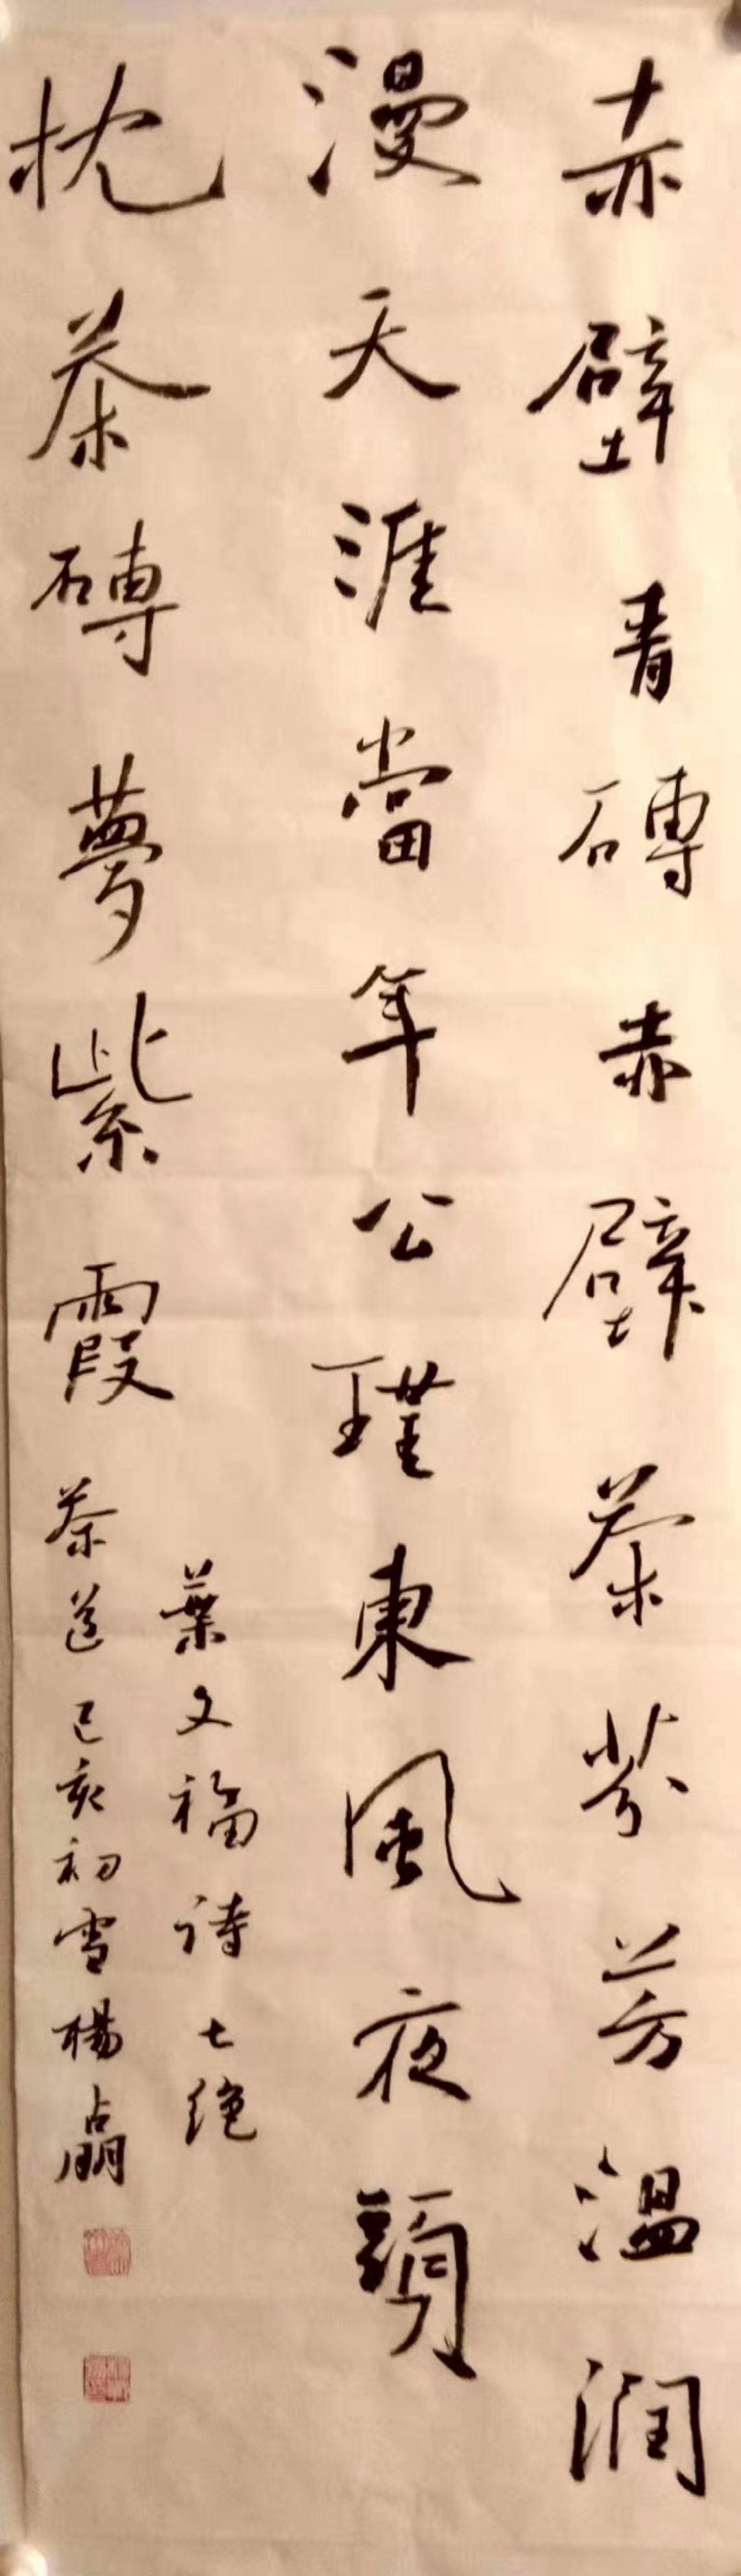 赤壁青磚赤壁茶芬芳温润
漫天涯當年公瑾東風夜頭
枕茶磚夢紫霞
葉文福诗七绝
茶道己亥初雪楊